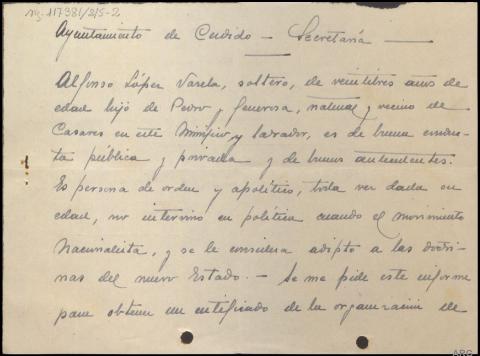 nº 117981/2/5-2
Ayuntamiento de Cerdido - Secretaría
Alfonso López Varela, soltero, de veintitres años de
edad hijo de Pedro y Generosa, natural y vecino de
Casares en este Municipio, y labrador, es de buena conduc-
ta pública y privada y de buenos antecedentes.
Es persona de orden y apolítico, toda vez dada su
edad, no intervino en política cuando el movimiento
Nacionalista, y se le considera adipto a las doctri-
nas del nuevo Estado. - Se me pide este informe
para obtener un certificado de la organización de